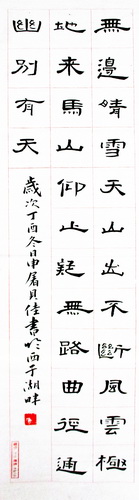 無邊晴雪天山出不斷風雲極
地来馬山仰止疑無路曲徑通
幽別有天
歲次丁酉冬日申屠貝佳書於西子湖畔